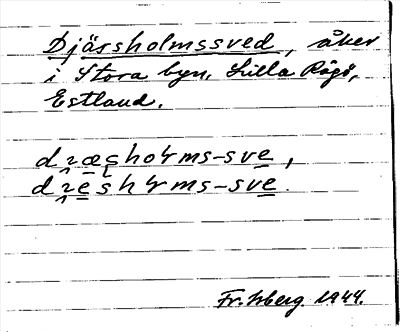 Djärsholmssved, åker
i Stora byn, Lilla Rågö,
Estland.
dꝛæsholms-sve,
dꝛeshlms-sve.
Fr. Isberg 1944.